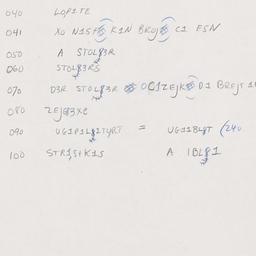 040 LOP1TE
041 XO N1SF K1N BROJ C1 FSN
050 A STOL83R
060 STOL83RS
070 D3R STOL83R OC1ZEJK D1 BREJT
080 ZEJ83XE
090 UG1P1L82TYRT = UG11BL8T (240
100 STR1St K1S A IBL81